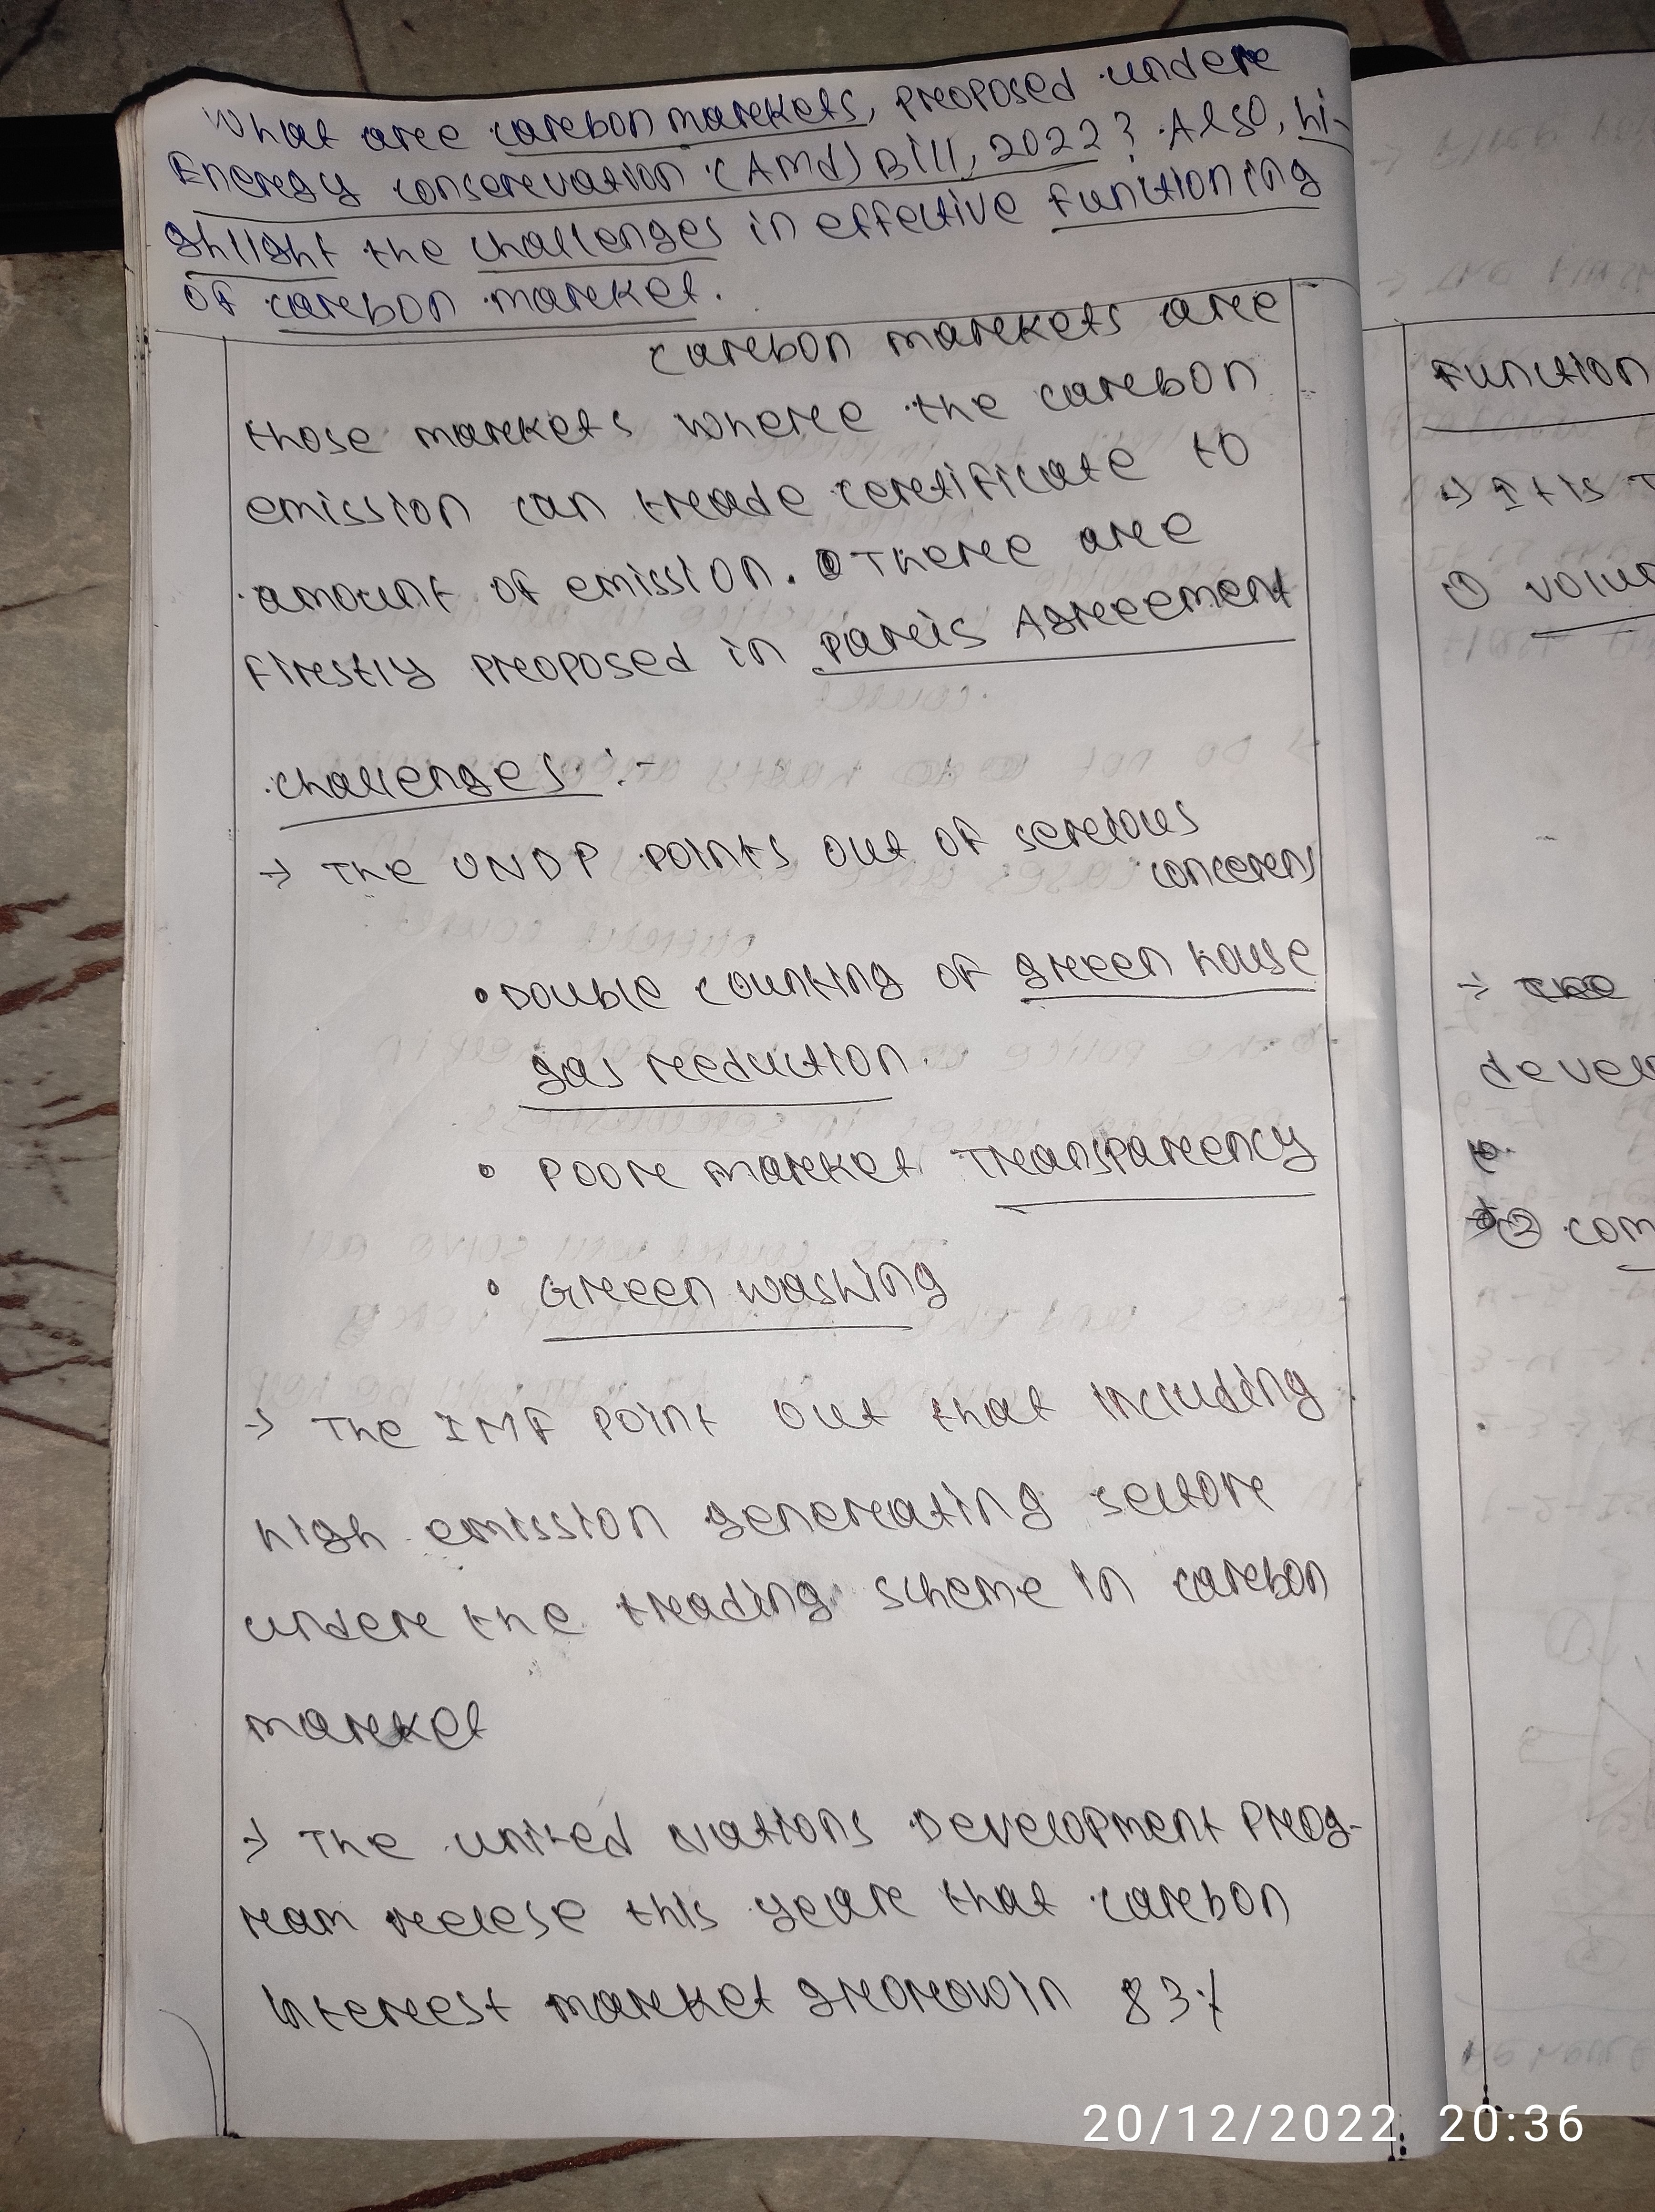 What are carbon markets, proposed under
Energy conservation (Amd) Bill, 2022? Also, hi-
ghlight the challenges in effective functioning
of carbon market.
carbon markets are
those markets where the carbon
emission can trade certificate to
amount of emission. There are
firstly proposed in Paris Agreement
challenges :-
→ The UNDP points out of serious
concerns
• Double counting of green house
gas reduction.
• Poor market Transparency
• Green washing
→ The IMF point out that including
high emission generating sector
under the trading scheme in carbon
market
→ The united Nations Development Prog-
ram relese this year that carbon
Interest market grorowin 83%
Function
→ It is
① Volun
→ The
devel
② com
20/12/2022 20:36